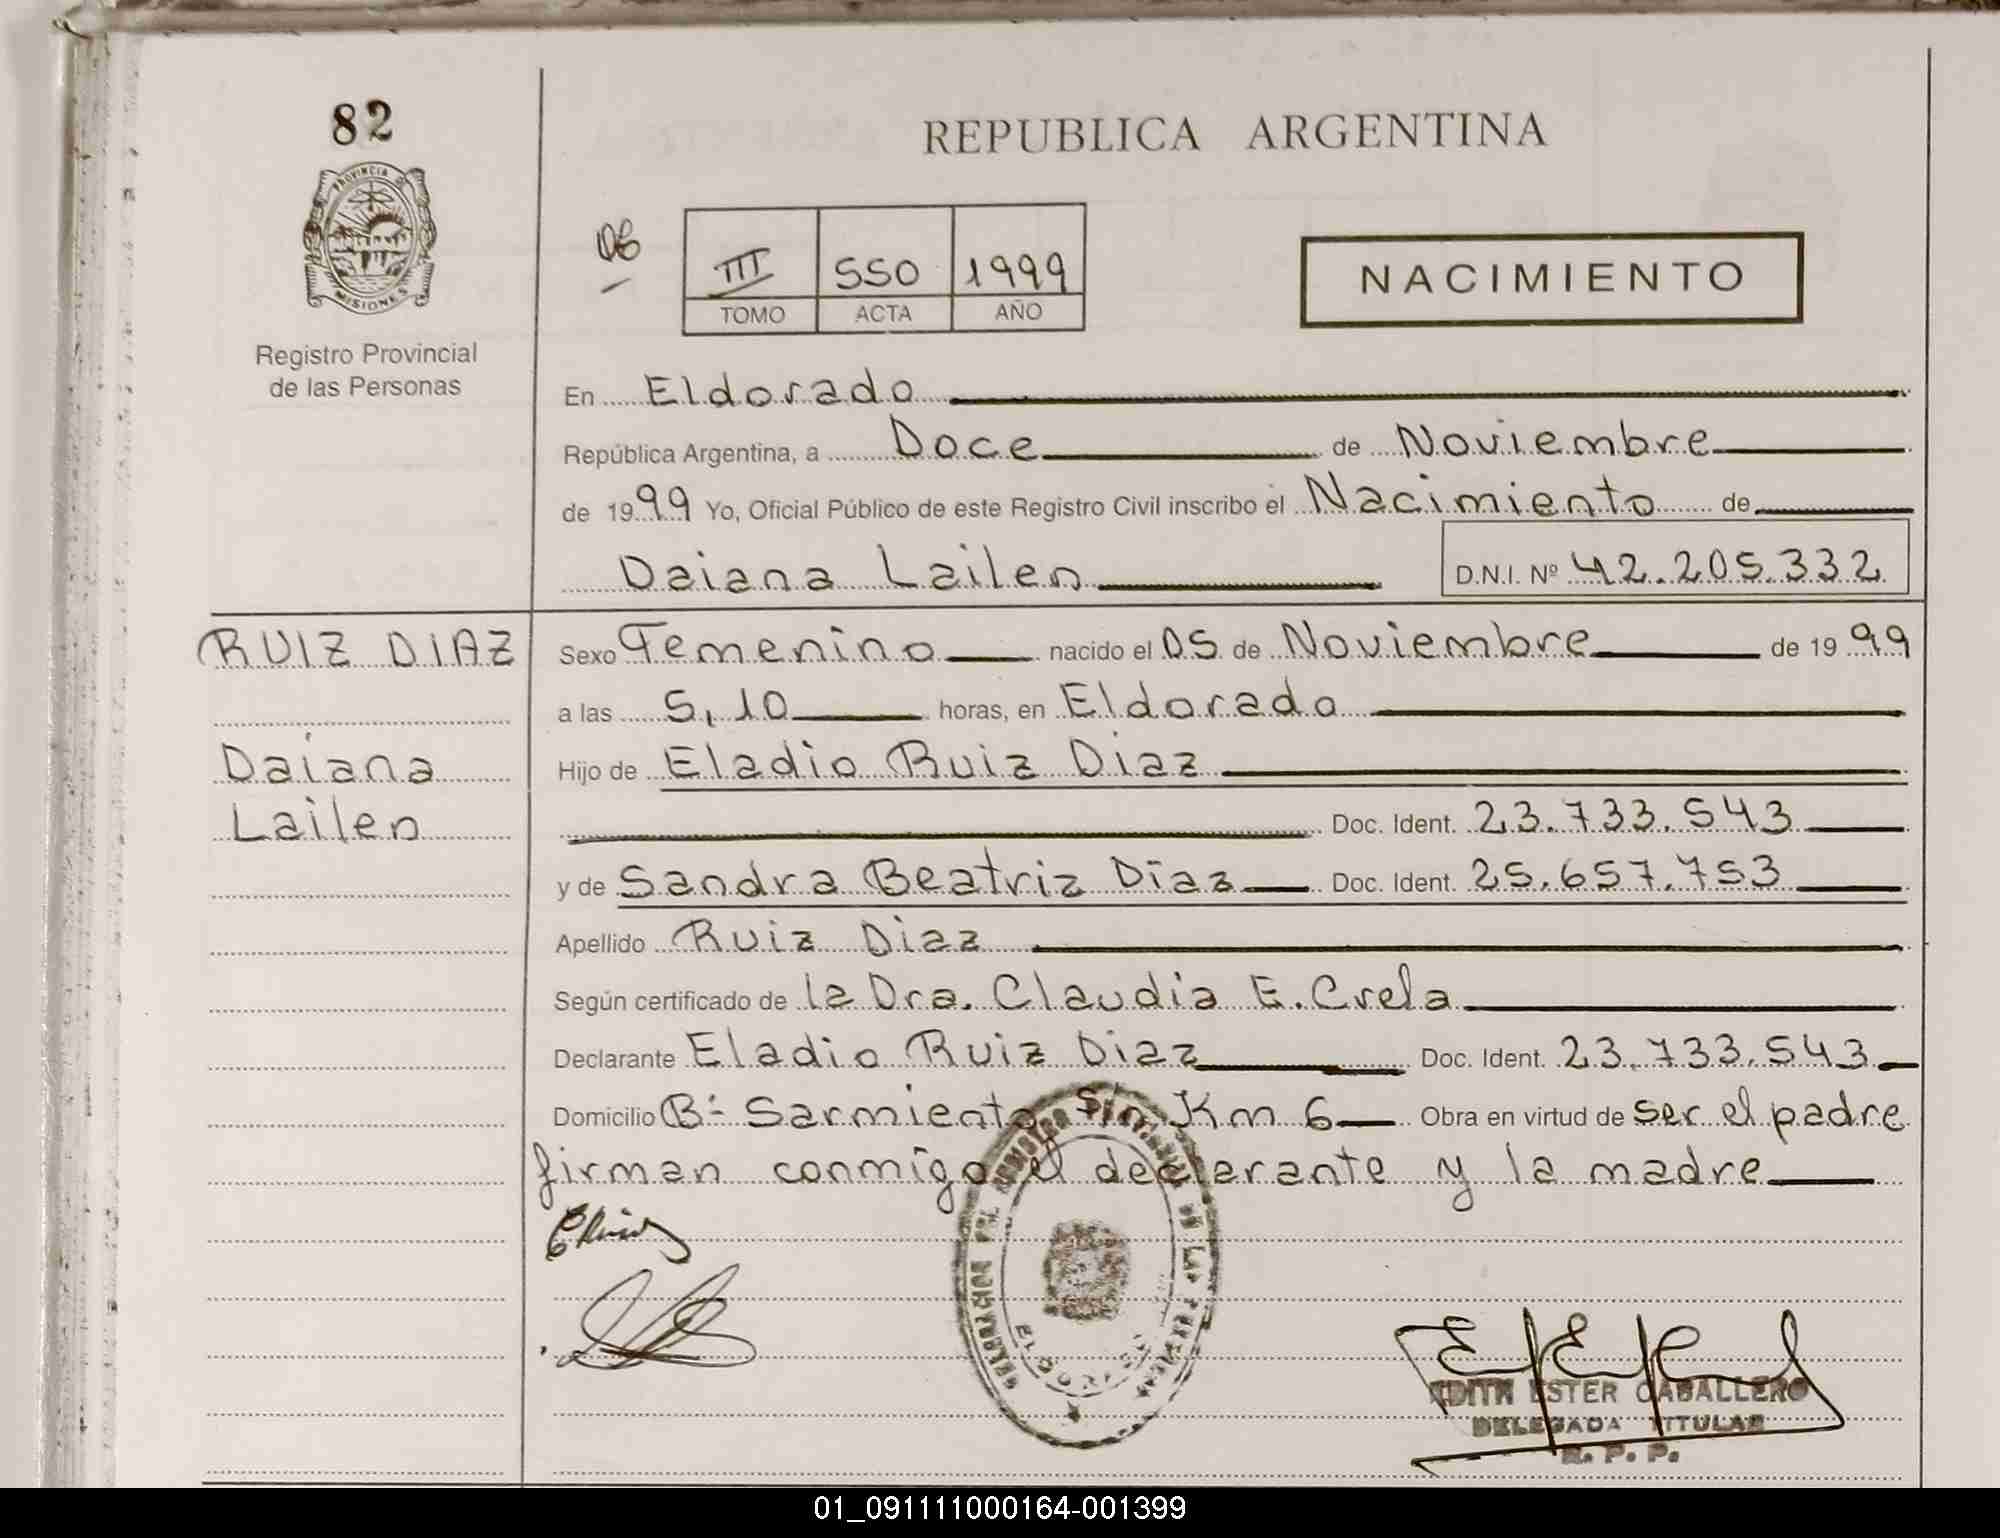 82
PROVINCIA DE
MISIONES
Registro Provincial
de las Personas
REPUBLICA ARGENTINA
06
III 550 1999
TOMO ACTA AÑO
NACIMIENTO
En Eldorado
República Argentina, a Doce de Noviembre
de 1999 Yo, Oficial Público de este Registro Civil inscribo el Nacimiento de
Daiana Lailen D.N.I. Nº 42.205.332
RUIZ DIAZ
Daiana
Lailen
Sexo Femenino nacido el 05 de Noviembre de 1999
a las 5,10 horas, en Eldorado
Hijo de Eladio Ruiz Diaz
Doc. Ident. 23.733.543
y de Sandra Beatriz Diaz Doc. Ident. 25.657.753
Apellido Ruiz Diaz
Según certificado de la Dra. Claudia E. Crela
Declarante Eladio Ruiz Diaz Doc. Ident. 23.733.543
Domicilio Bº Sarmiento S/n Km 6 Obra en virtud de ser el padre
firman conmigo el declarante y la madre
DE LAS PERSONAS
EDITH ESTER CABALLERO
DELEGADA TITULAR
R. P. P.
01_091111000164-001399